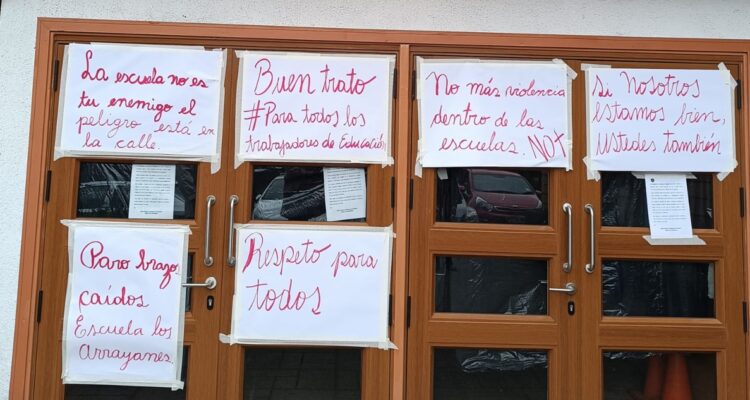 La escuela no es
tu enemigo el
peligro está en
la calle.
Buen trato
#Para todos los
trabajadores de Educación
No más violencia
dentro de las
escuelas. NO+
Si Nosotros
Estamos bien,
Ustedes también
Paro brazos
caídos
Escuela los
Arrayanes.
Respeto para
todos